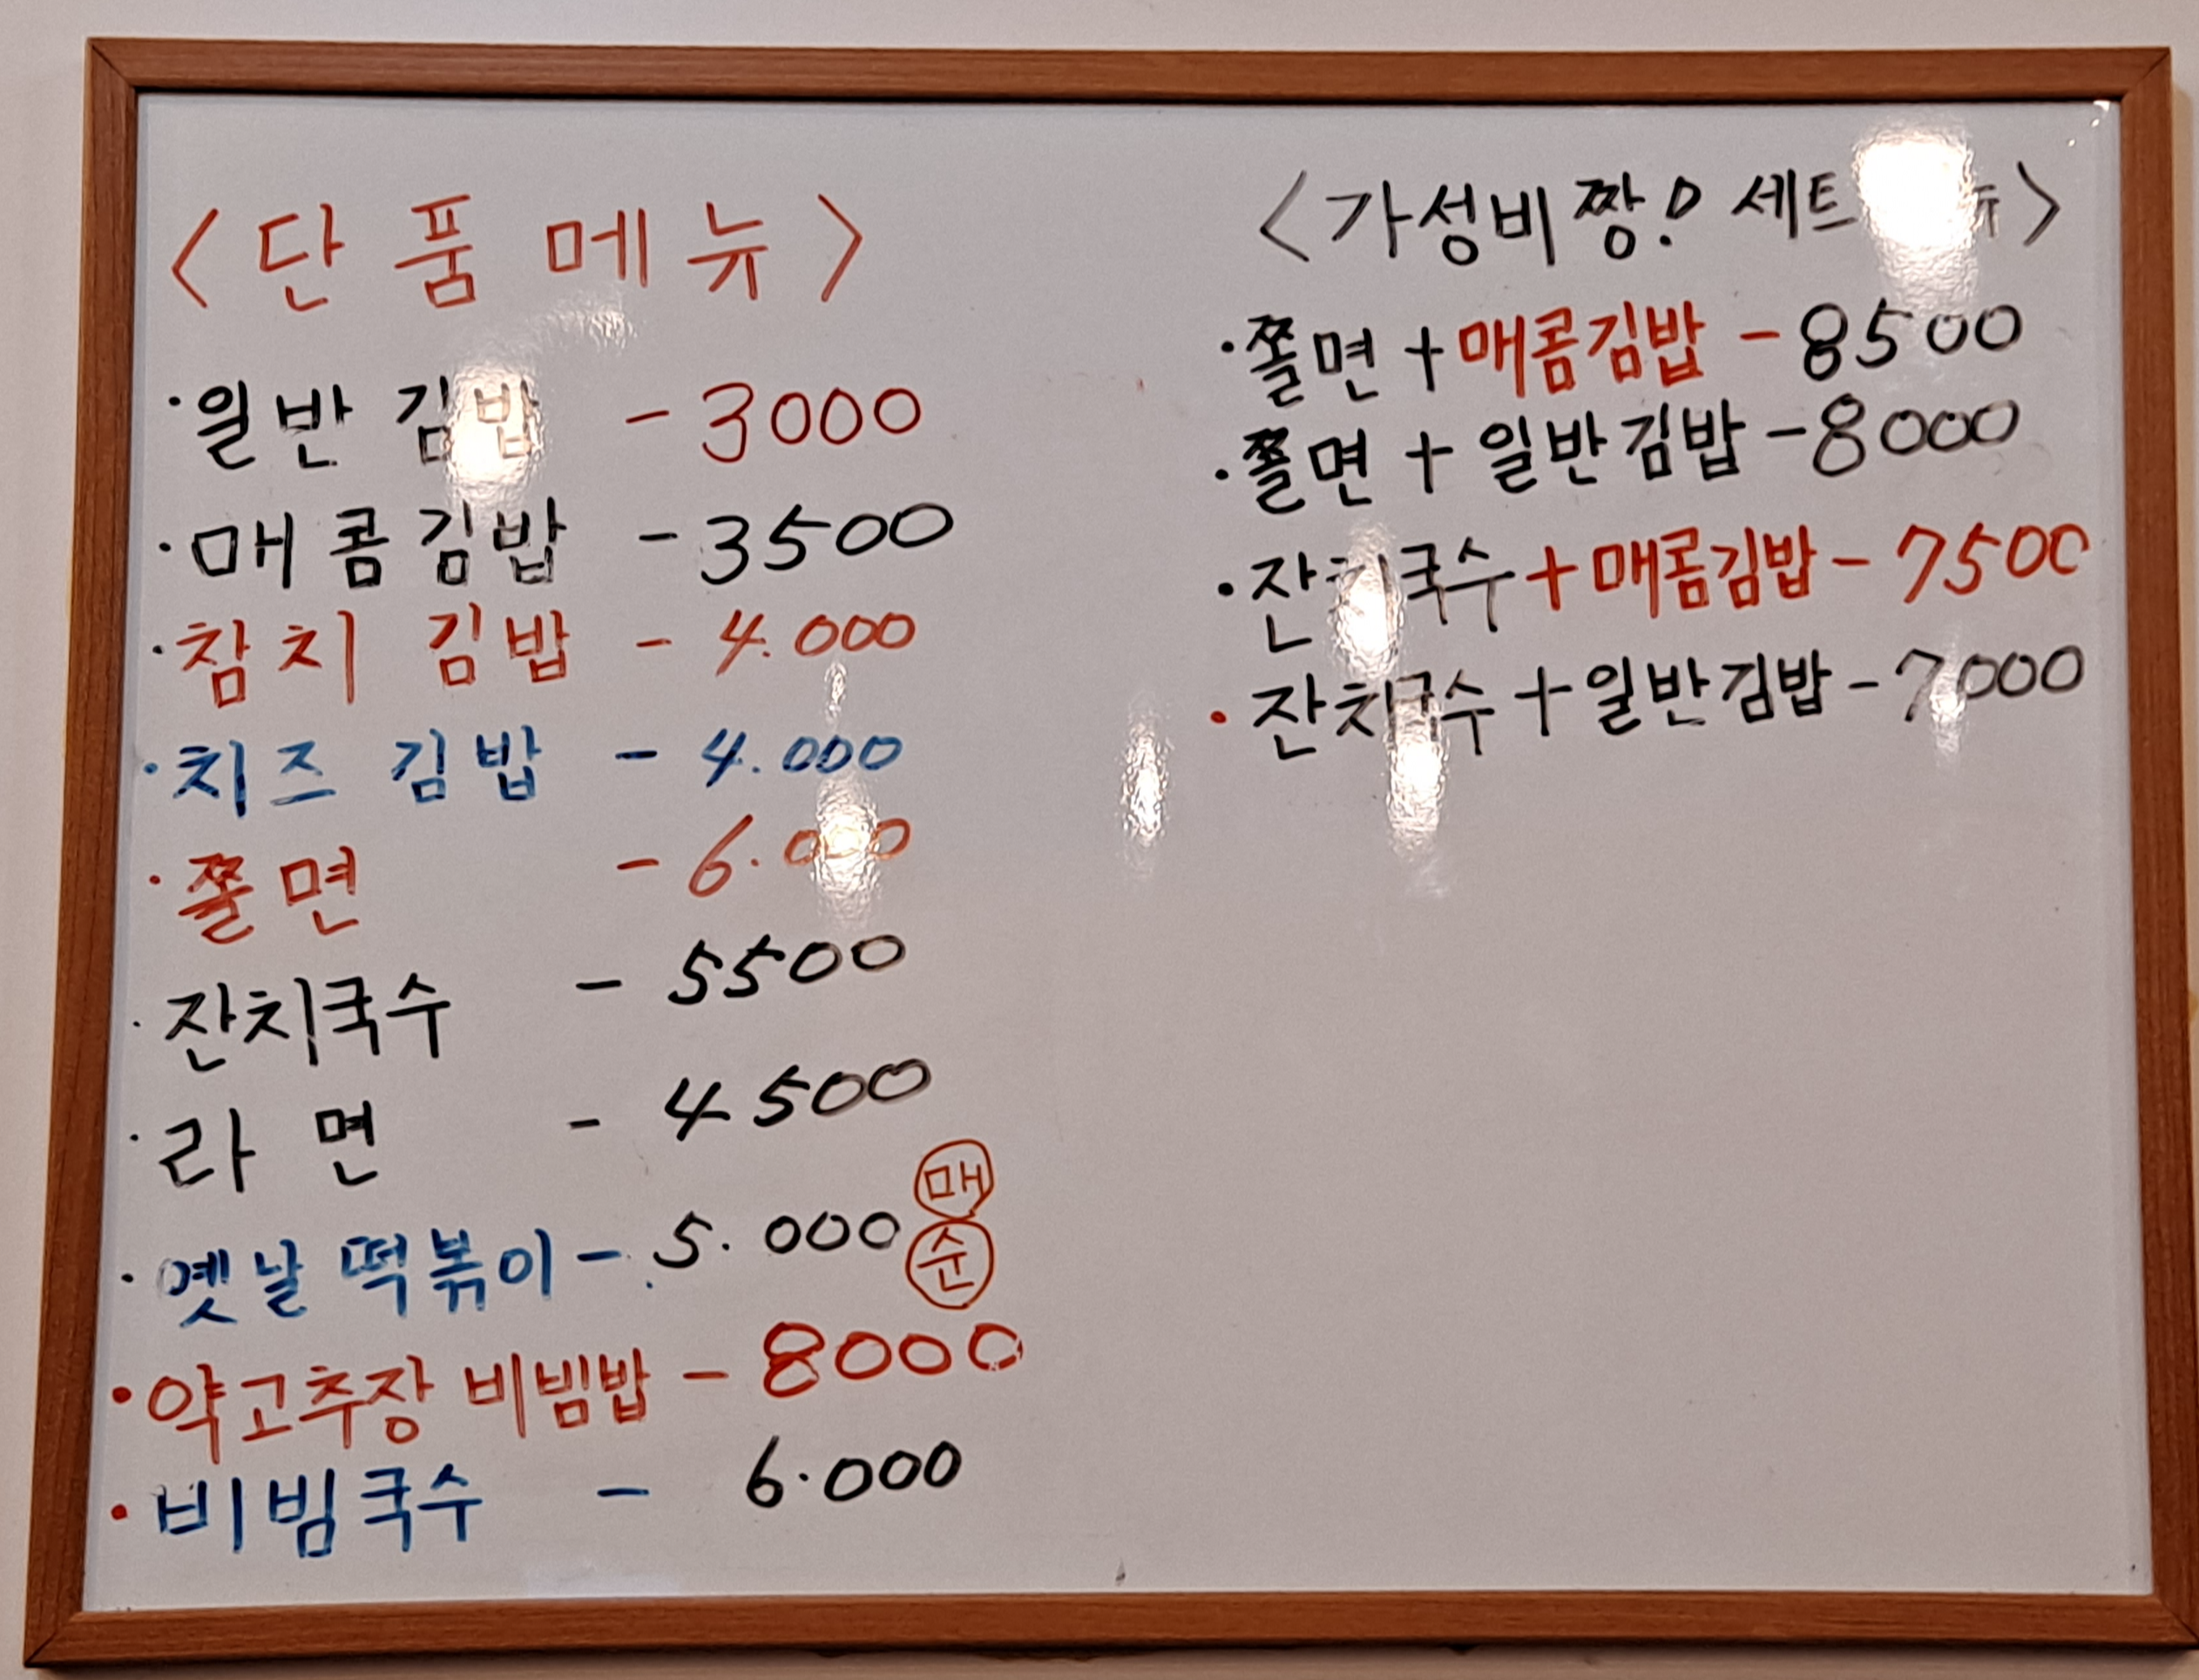 <단품메뉴>
·일반 김밥 - 3000
·매콤김밥 - 3500
·참치 김밥 - 4.000
·치즈 김밥 - 4.000
·쫄면 - 6.000
·잔치국수 - 5500
·라면 - 4500
·옛날 떡볶이 - 5.000 매 순
·약고추장 비빔밥 - 8000
·비빔국수 - 6.000
<가성비짱! 세트메뉴>
·쫄면+매콤김밥 - 8500
·쫄면+일반김밥 - 8000
·잔치국수+매콤김밥 - 7500
·잔치국수+일반김밥 - 7000